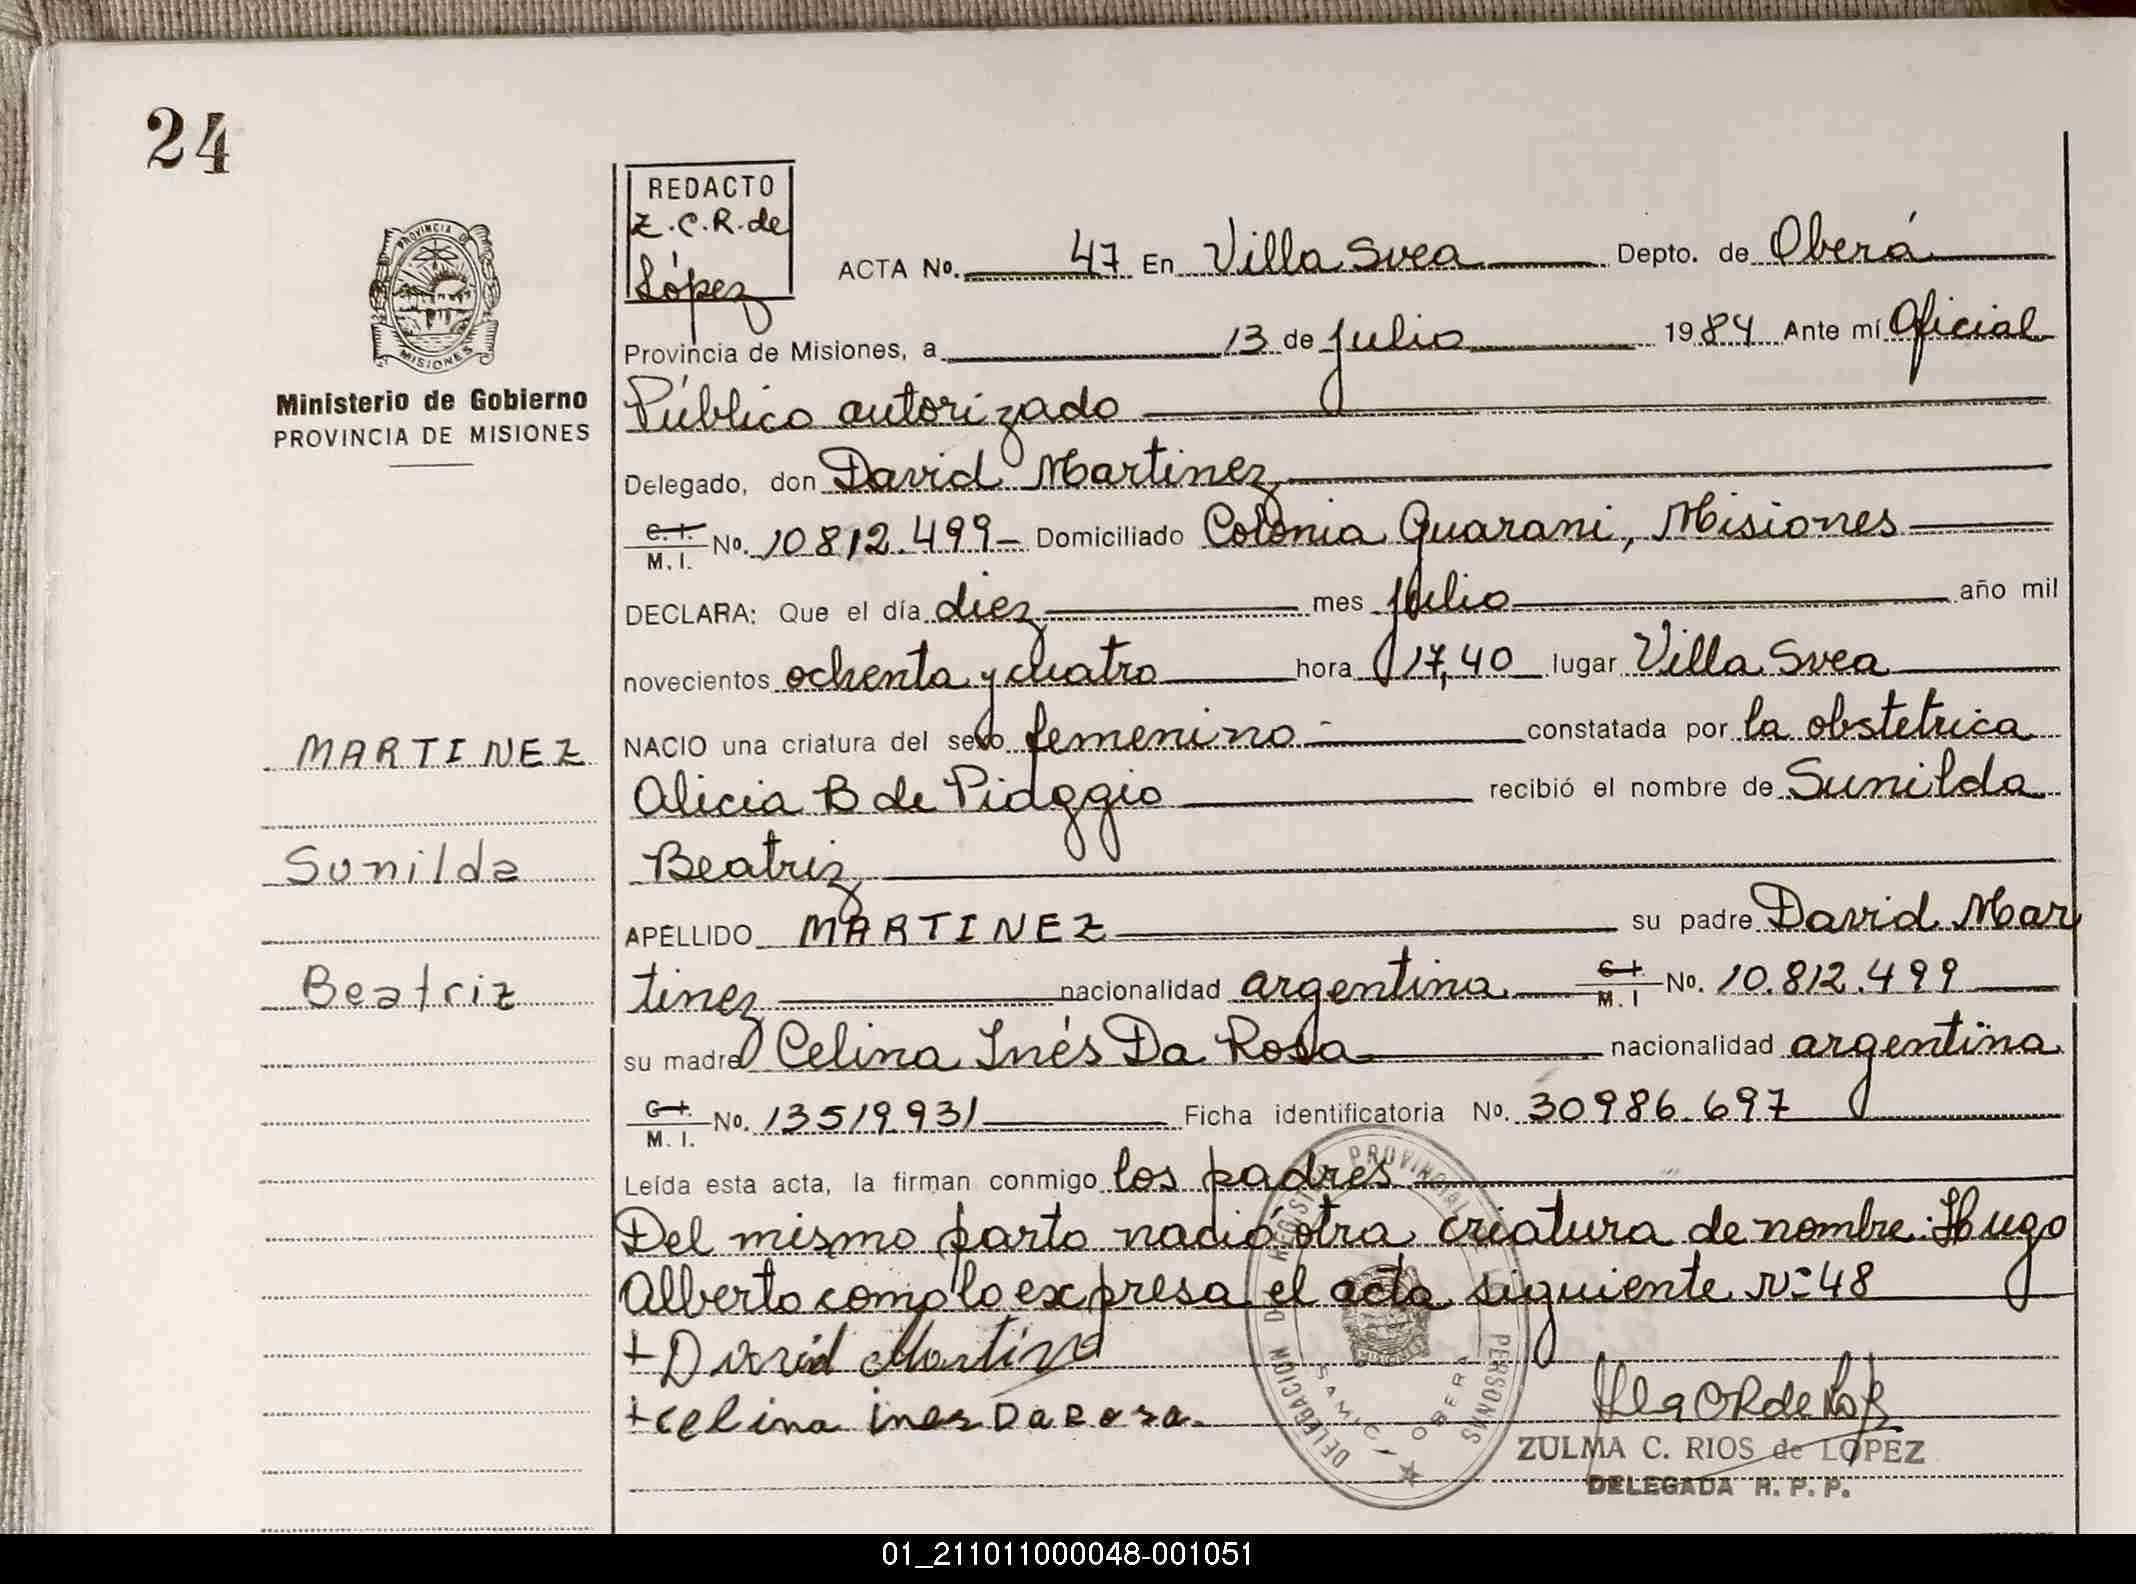 24
REDACTO
Z.C.R. de
López
PROVINCIA DE
MISIONES
Ministerio de Gobierno
PROVINCIA DE MISIONES
ACTA No. 47 En Villa Svea Depto. de Oberá
Provincia de Misiones, a 13 de julio 1984 Ante mí Oficial
Público autorizado
Delegado, don David Martinez
C.I. M.I. No. 10812.499 Domiciliado Colonia Guarani, Misiones
DECLARA: Que el día diez mes julio año mil
novecientos ochenta y cuatro hora 17,40 lugar Villa Svea
MARTINEZ
NACIO una criatura del sexo femenino constatada por la obstetrica
Alicia B de Pidggio recibió el nombre de Sunilda
Sunilda
Beatriz
APELLIDO MARTINEZ su padre David Mar
Beatriz
tinez nacionalidad argentina C.I. M.I No. 10.812.499
su madre Celina Inés Da Rosa nacionalidad argentina
C.I. M.I. No. 13519931 Ficha identificatoria No. 30986.697
Leída esta acta, la firman conmigo los padres
Del mismo parto nació otra criatura de nombre: Hugo
Alberto como lo expresa el acta siguiente Nº 48
+ David Martinez
+ celina ines Da Rosa
DELEGACION DEL REGISTRO PROVINCIAL PERSONAS
OBERA
ZULMA C. RIOS de LOPEZ
DELEGADA R. P. P.
01_211011000048-001051